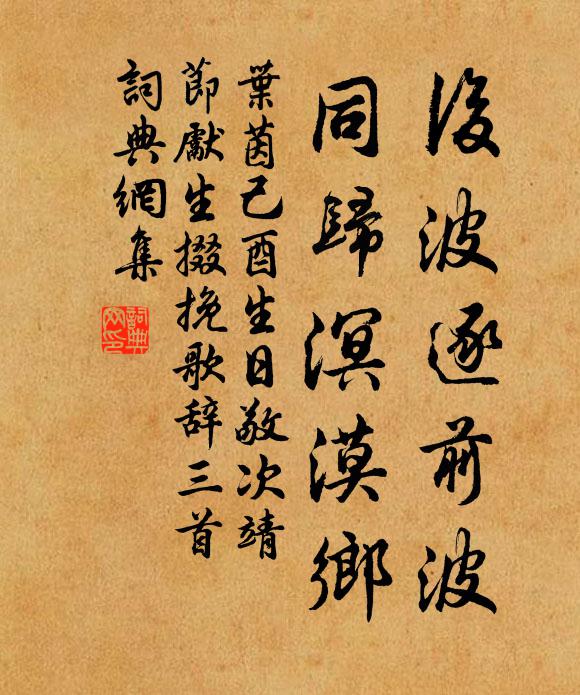 後波逐前波
同歸溟漠鄉
葉茵己酉生日敬次靖
節獻生掇挽歌辞三首
詞典網集
詞典
网印